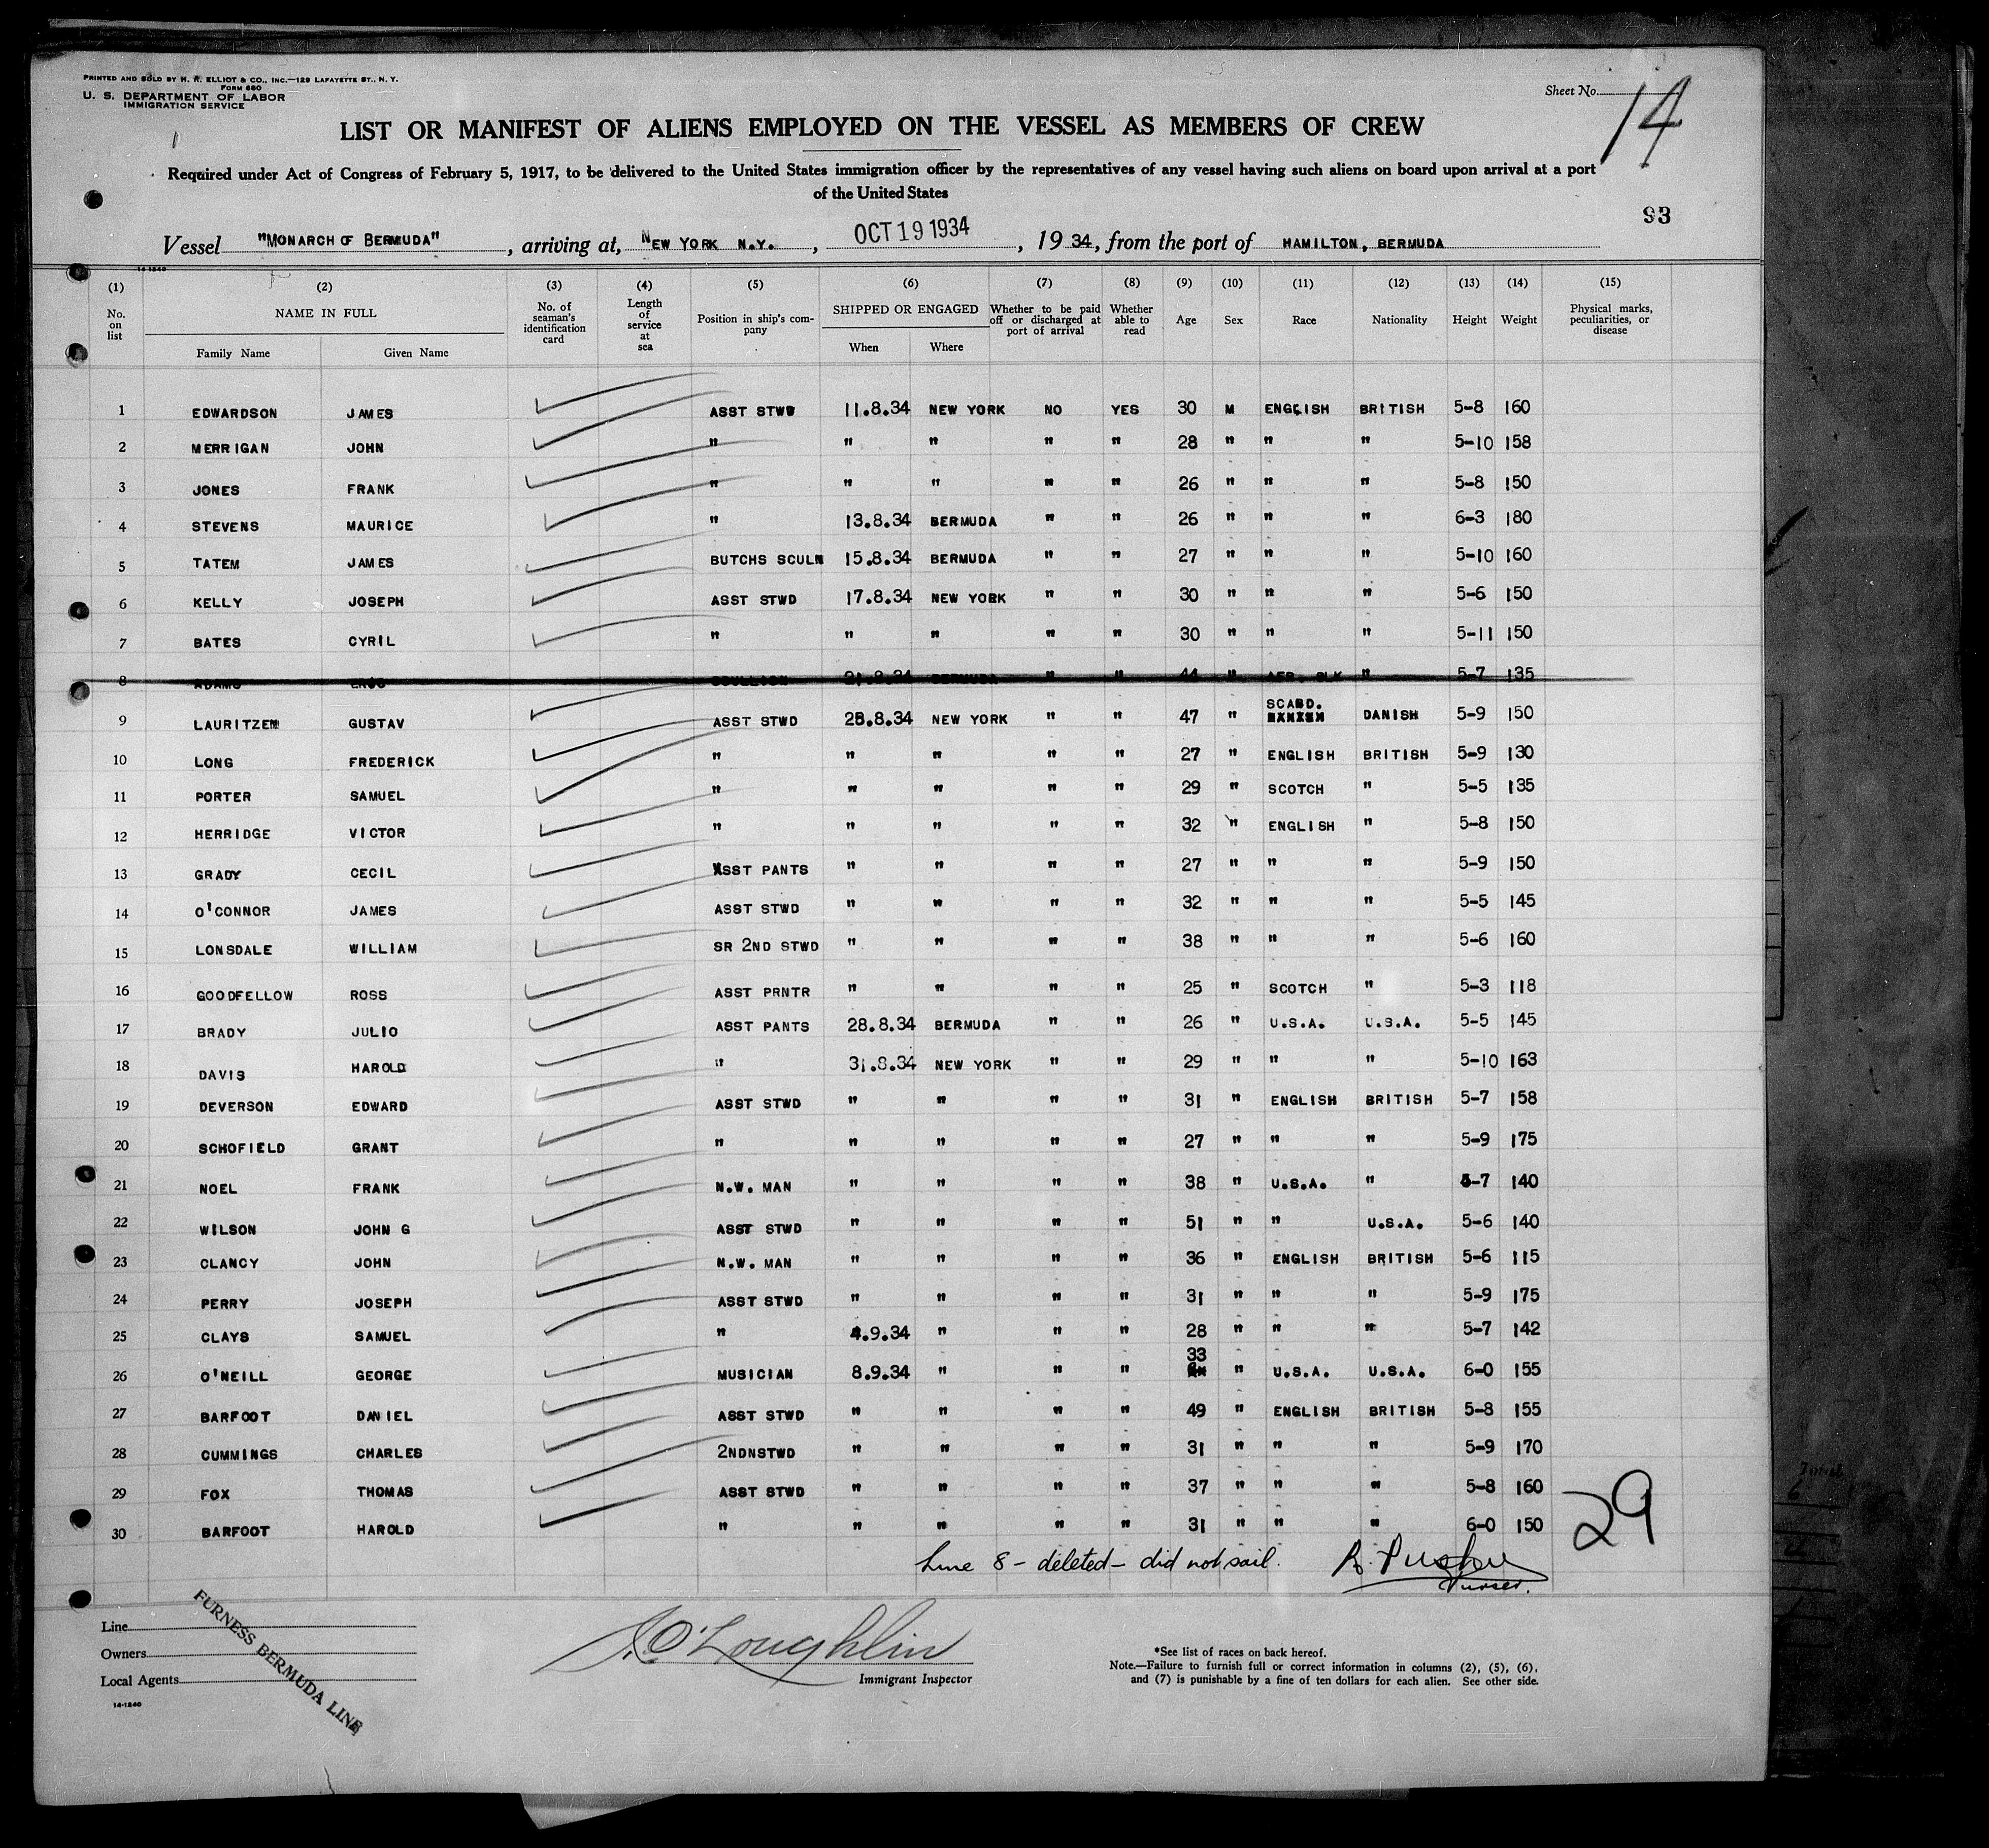 PRINTED AND SOLD BY H. R. ELLIOT & CO., INC.—129 LAFAYETTE ST., N. Y.
FORM 680
U. S. DEPARTMENT OF LABOR
IMMIGRATION SERVICE
Sheet No. 14
LIST OR MANIFEST OF ALIENS EMPLOYED ON THE VESSEL AS MEMBERS OF CREW
Required under Act of Congress of February 5, 1917, to be delivered to the United States immigration officer by the representatives of any vessel having such aliens on board upon arrival at a port
of the United States
93
Vessel "MONARCH OF BERMUDA", arriving at, NEW YORK N.Y., OCT 19 1934, 1934, from the port of HAMILTON, BERMUDA
14-1240
(1) (2) (3) (4) (5) (6) (7) (8) (9) (10) (11) (12) (13) (14) (15)
No. on list NAME IN FULL Family Name Given Name No. of seaman's identification card Length of service at sea Position in ship's company SHIPPED OR ENGAGED When Where Whether to be paid off or discharged at port of arrival Whether able to read Age Sex Race Nationality Height Weight Physical marks, peculiarities, or disease
1 EDWARDSON JAMES ASST STWD 11.8.34 NEW YORK NO YES 30 M ENGLISH BRITISH 5-8 160
2 MERRIGAN JOHN " " " " " 28 " " " 5-10 158
3 JONES FRANK " " " " " 26 " " " 5-8 150
4 STEVENS MAURICE " 13.8.34 BERMUDA " " 26 " " " 6-3 180
5 TATEM JAMES BUTCHS SCULN 15.8.34 BERMUDA " " 27 " " " 5-10 160
6 KELLY JOSEPH ASST STWD 17.8.34 NEW YORK " " 30 " " " 5-6 150
7 BATES CYRIL " " " " " 30 " " " 5-11 150
8 ADAMS SCULLION 21.8.34 BERMUDA " " 44 " AFR. BLK " 5-7 135
9 LAURITZEN GUSTAV ASST STWD 28.8.34 NEW YORK " " 47 " SCABD. DANISH 5-9 150
10 LONG FREDERICK " " " " " 27 " ENGLISH BRITISH 5-9 130
11 PORTER SAMUEL " " " " " 29 " SCOTCH " 5-5 135
12 HERRIDGE VICTOR " " " " " 32 " ENGLISH " 5-8 150
13 GRADY CECIL ASST PANTS " " " " 27 " " " 5-9 150
14 O'CONNOR JAMES ASST STWD " " " " 32 " " " 5-5 145
15 LONSDALE WILLIAM SR 2ND STWD " " " " 38 " " " 5-6 160
16 GOODFELLOW ROSS ASST PRNTR " " " " 25 " SCOTCH " 5-3 118
17 BRADY JULIO ASST PANTS 28.8.34 BERMUDA " " 26 " U.S.A. U.S.A. 5-5 145
18 DAVIS HAROLD " 31.8.34 NEW YORK " " 29 " " " 5-10 163
19 DEVERSON EDWARD ASST STWD " " " " 31 " ENGLISH BRITISH 5-7 158
20 SCHOFIELD GRANT " " " " " 27 " " " 5-9 175
21 NOEL FRANK N.W. MAN " " " " 38 " U.S.A. " 5-7 140
22 WILSON JOHN G ASST STWD " " " " 51 " " U.S.A. 5-6 140
23 CLANCY JOHN N.W. MAN " " " " 36 " ENGLISH BRITISH 5-6 115
24 PERRY JOSEPH ASST STWD " " " " 31 " " " 5-9 175
25 CLAYS SAMUEL " 4.9.34 " " " 28 " " " 5-7 142
26 O'NEILL GEORGE MUSICIAN 8.9.34 " " " 33 " U.S.A. U.S.A. 6-0 155
27 BARFOOT DANIEL ASST STWD " " " " 49 " ENGLISH BRITISH 5-8 155
28 CUMMINGS CHARLES 2NDNSTWD " " " " 31 " " " 5-9 170
29 FOX THOMAS ASST STWD " " " " 37 " " " 5-8 160
30 BARFOOT HAROLD " " " " " 31 " " " 6-0 150
29
Line 8 - deleted - did not sail.
Purser.
Line
Owners
Local Agents
FURNESS BERMUDA LINE
14-1240
O'Loughlin
Immigrant Inspector
*See list of races on back hereof.
Note.—Failure to furnish full or correct information in columns (2), (5), (6),
and (7) is punishable by a fine of ten dollars for each alien. See other side.